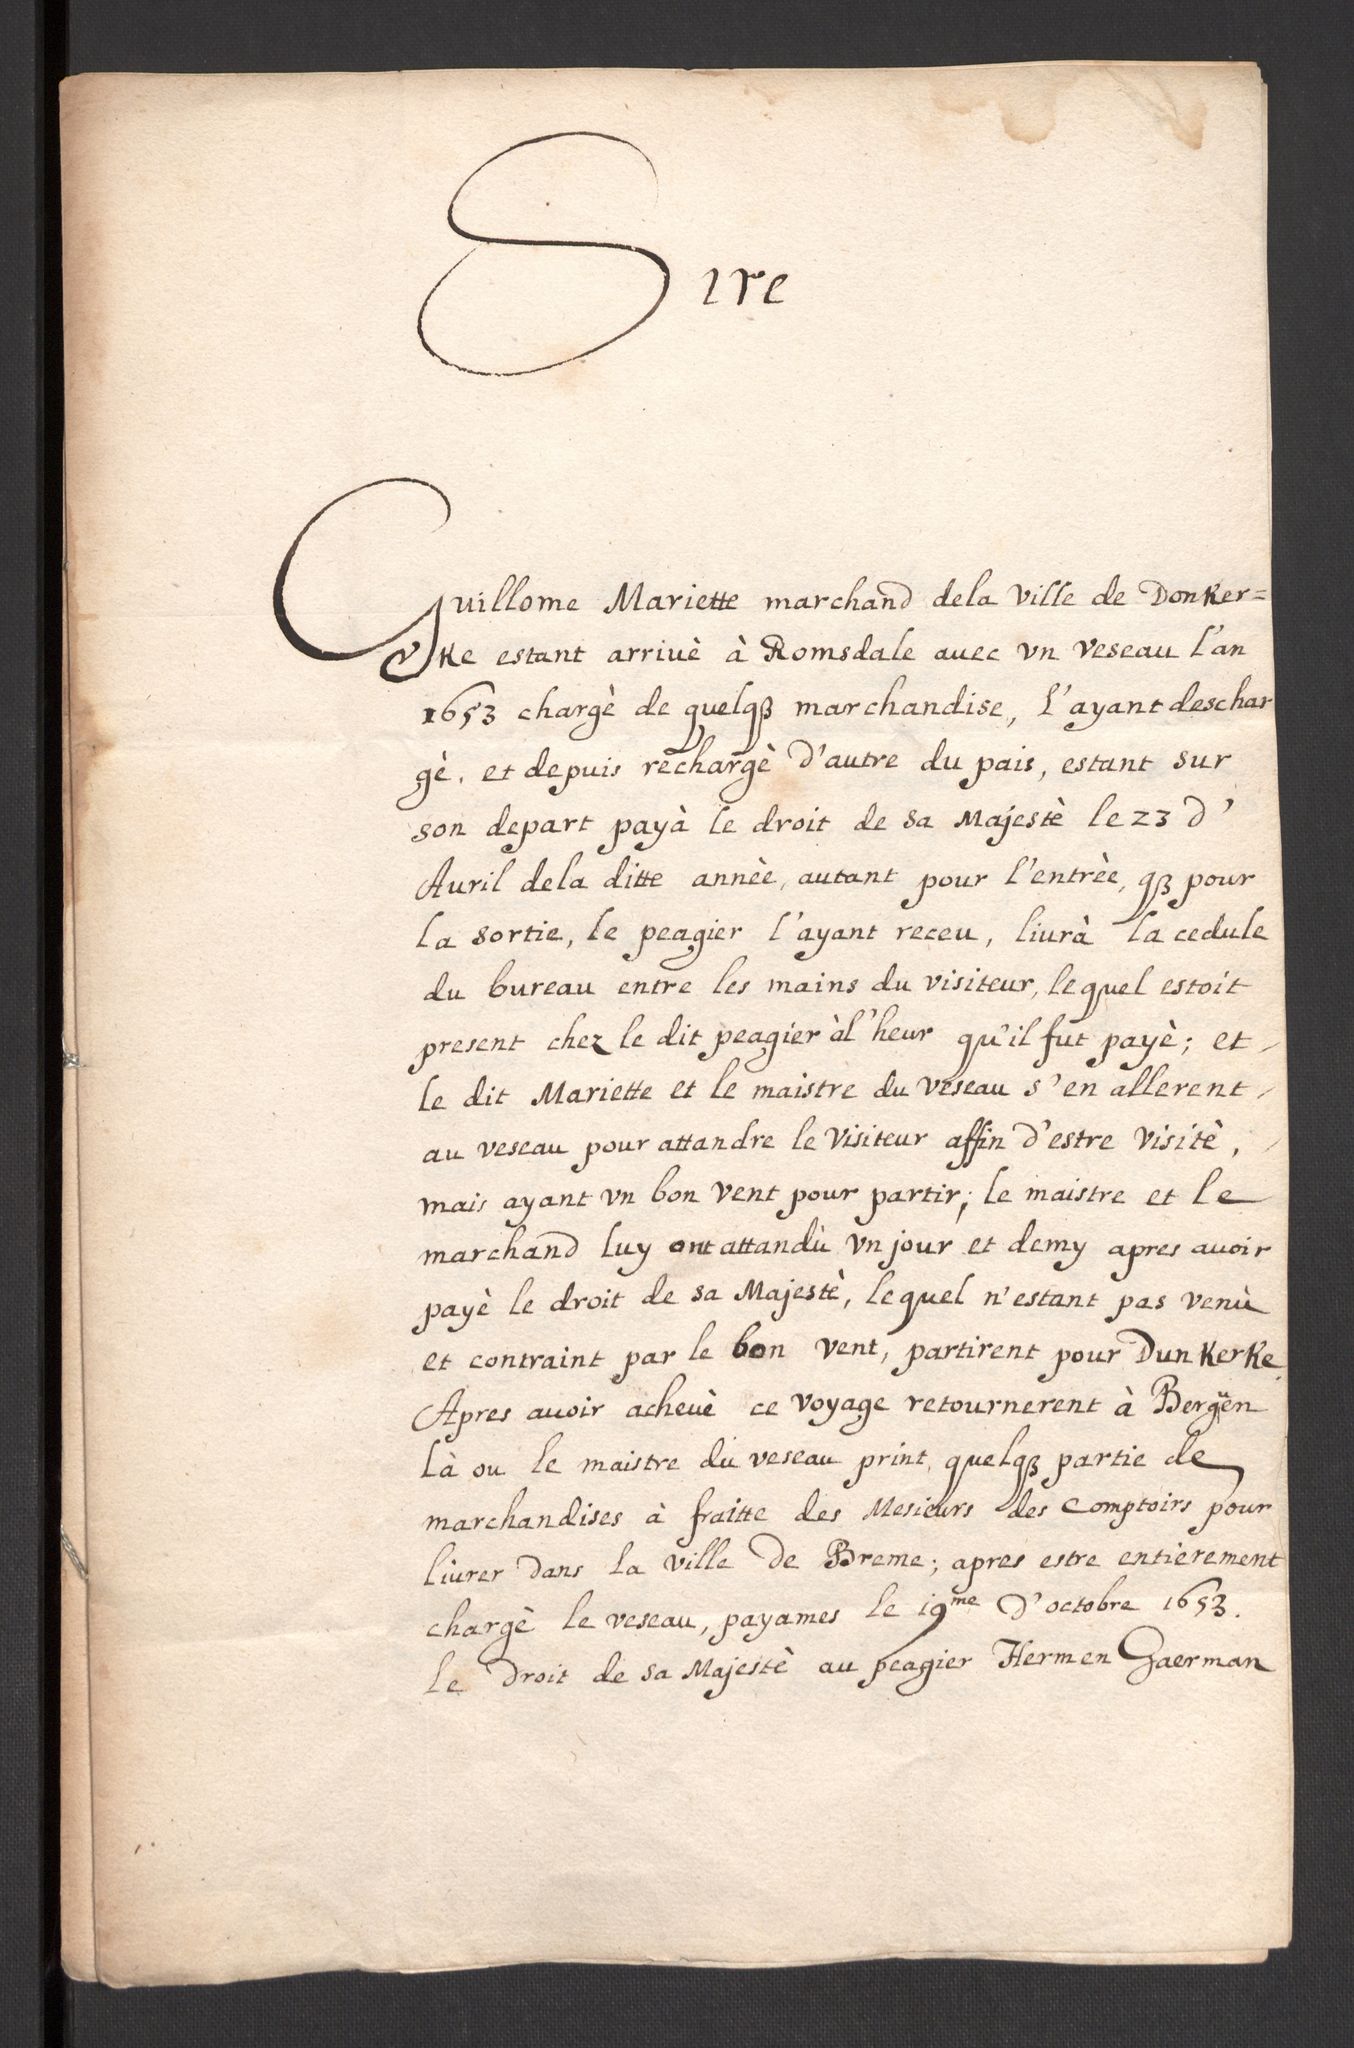 Sire
Guillome Mariette marchand dela ville de Donker=
ke estant arriuè à Romsdale auec vn veseau l'an
1653 chargè de quelqꝫ marchandise, l'ayant deschar
gè, et depuis rechargè d'autre du pais, estant sur
son depart payà le droit de sa Majestè le 23 d'
Auril dela ditte annèe, autant pour l'entrèe, qꝫ pour
la sortie, le peagier l'ayant receu, liurà la cedule
du bureau entre les mains du visiteur, lequel estoit
present chez le dit peagier àl'heur qu'il fut payè; et
le dit Mariette et le maistre du veseau s'en allerent
au veseau pour attandre le visiteur affin d'estre visitè,
mais ayant vn bon vent pour partir; le maistre et le
marchand luy ont attandù vn jour et demy apres auoir
payè le droit de sa Majestè, lequel n'estant pas venù
et contraint par le bon vent, partirent pour Dunkerke,
Apres auoir acheuè ce voyage retournerent à Bergën
là ou le maistre du veseau print, quelqꝫ partie de
marchandises à fraitte des Mesieurs des Comptoirs pour
liurer dans la ville de Breme; apres estre entierement
chargè le veseau, payames le 19me d'octobre 1653.
le droit de sa Majestè au peagier Hermen Gaerman